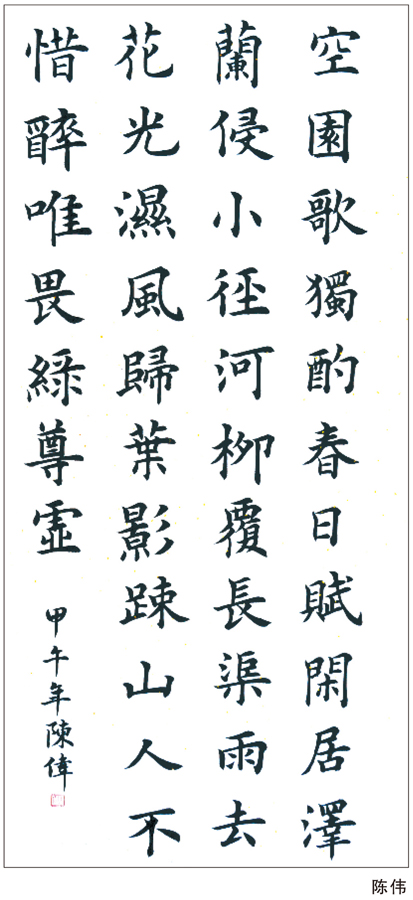 空園歌獨酌春日賦閑居澤
蘭侵小徑河柳覆長渠雨去
花光濕風歸葉影踈山人不
惜醉唯畏綠尊虛
甲午年陳偉
陈伟